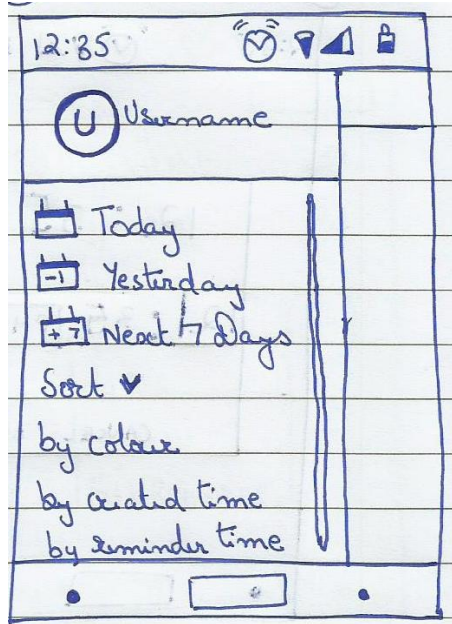 12:35
U Username
Today
-1 Yesterday
+7 Next 7 Days
Sort
by colour
by created time
by reminder time